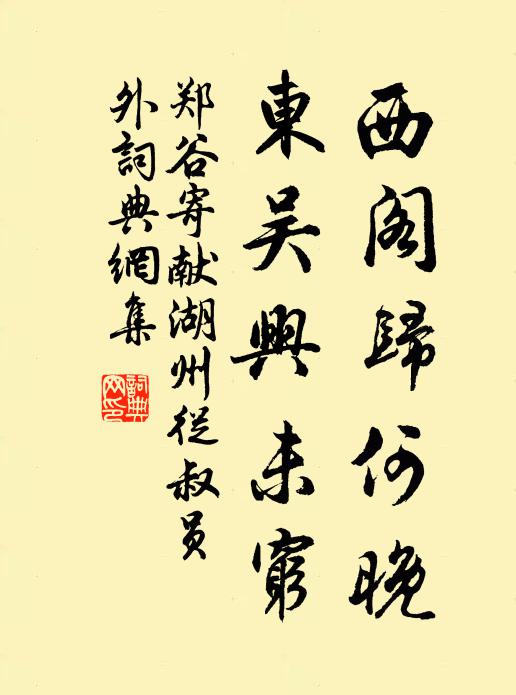 西阁歸何晚
東吴興未窮
郑谷寄献湖州從叔员
外詞典網集
詞典
网印